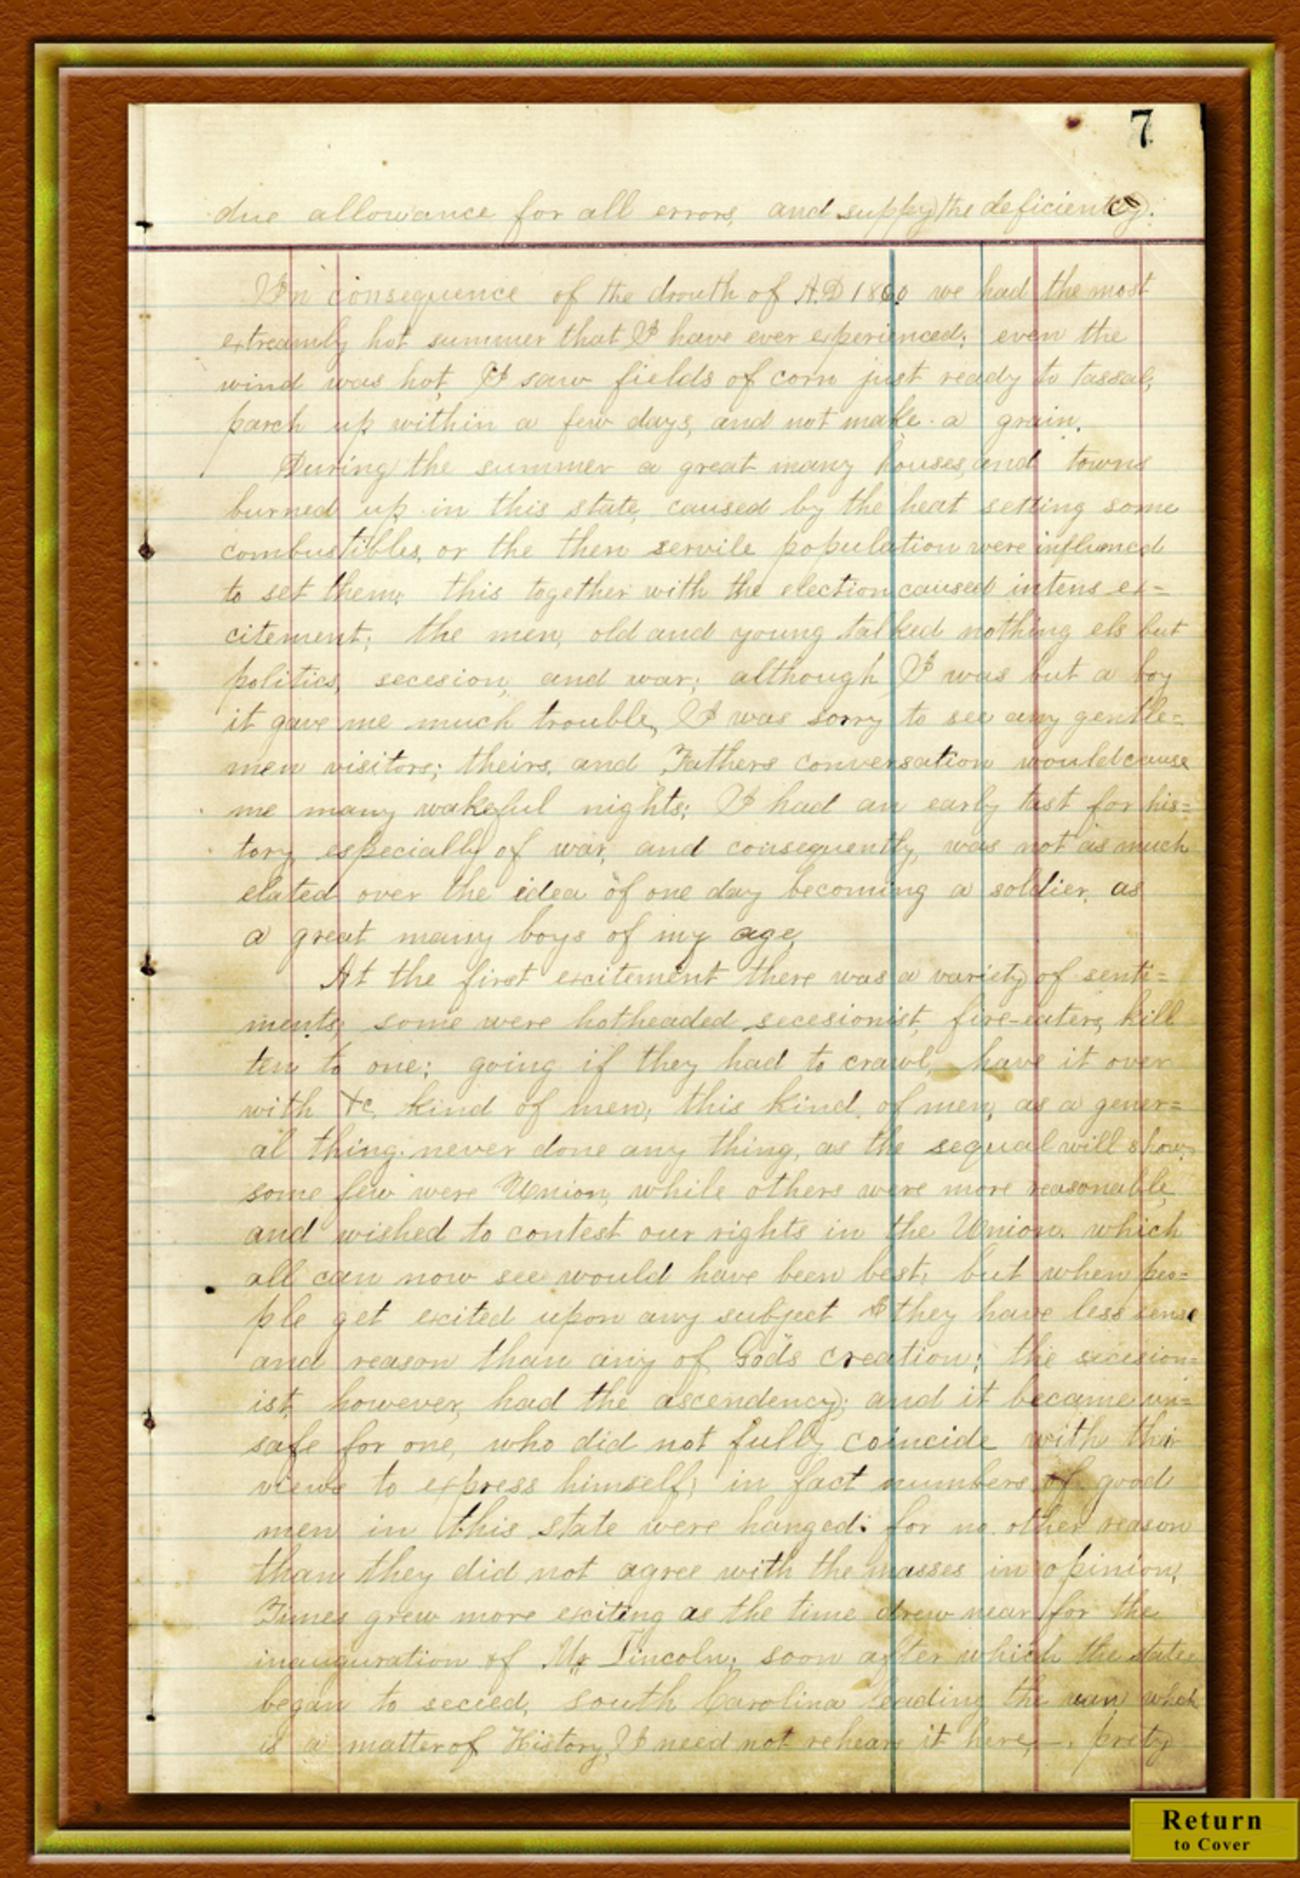 7
due allowance for all errors, and supply the deficiency.
In consequence of the drouth of A.D 1860 we had the most
extreamly hot summer that I have ever experienced; even the
wind was hot, I saw fields of corn just ready to tassal,
parch up within a few days, and not make a grain.
During the summer a great many houses, and towns
burned up in this state, caused by the heat setting some
combustibles, or the then servile population were influenced
to set them; this together with the election caused intens ex=
citement; the men, old and young talked nothing els but
politics, secesion, and war; although I was but a boy
it gave me much trouble, I was sorry to see any gentle=
men visitors; theirs, and Fathers conversation would cause
me many wakeful nights; I had an early tast for his=
tory, especially of war, and consequently, was not as much
elated over the idea of one day becoming a soldier, as
a great many boys of my age,
At the first excitement there was a variety of senti=
ments; some were hotheaded secesionist, fire-eaters, kill
ten to one; going if they had to crawl, have it over
with &c, kind of men; this kind of men, as a gener=
al thing never done any thing, as the sequal will show,
some few were Union, while others were more reasonable,
and wished to contest our rights in the Union. which
all can now see would have been best; but when peo=
ple get excited upon any subject they have less sense
and reason than any of Gods creation; the secesion=
ist, however, had the ascendency; and it became un=
safe for one, who did not fully coincide with their
views to express himself; in fact numbers of good
men in this state were hanged; for no other reason
than they did not agree with the masses in opinion,
Times grew more exciting as the time drew near for the
inauguration of Mr Lincoln; soon after which the states
began to secied, South Carolina leading the van which
is a matter of History, I need not rehears it here, —. prety
Return
to Cover